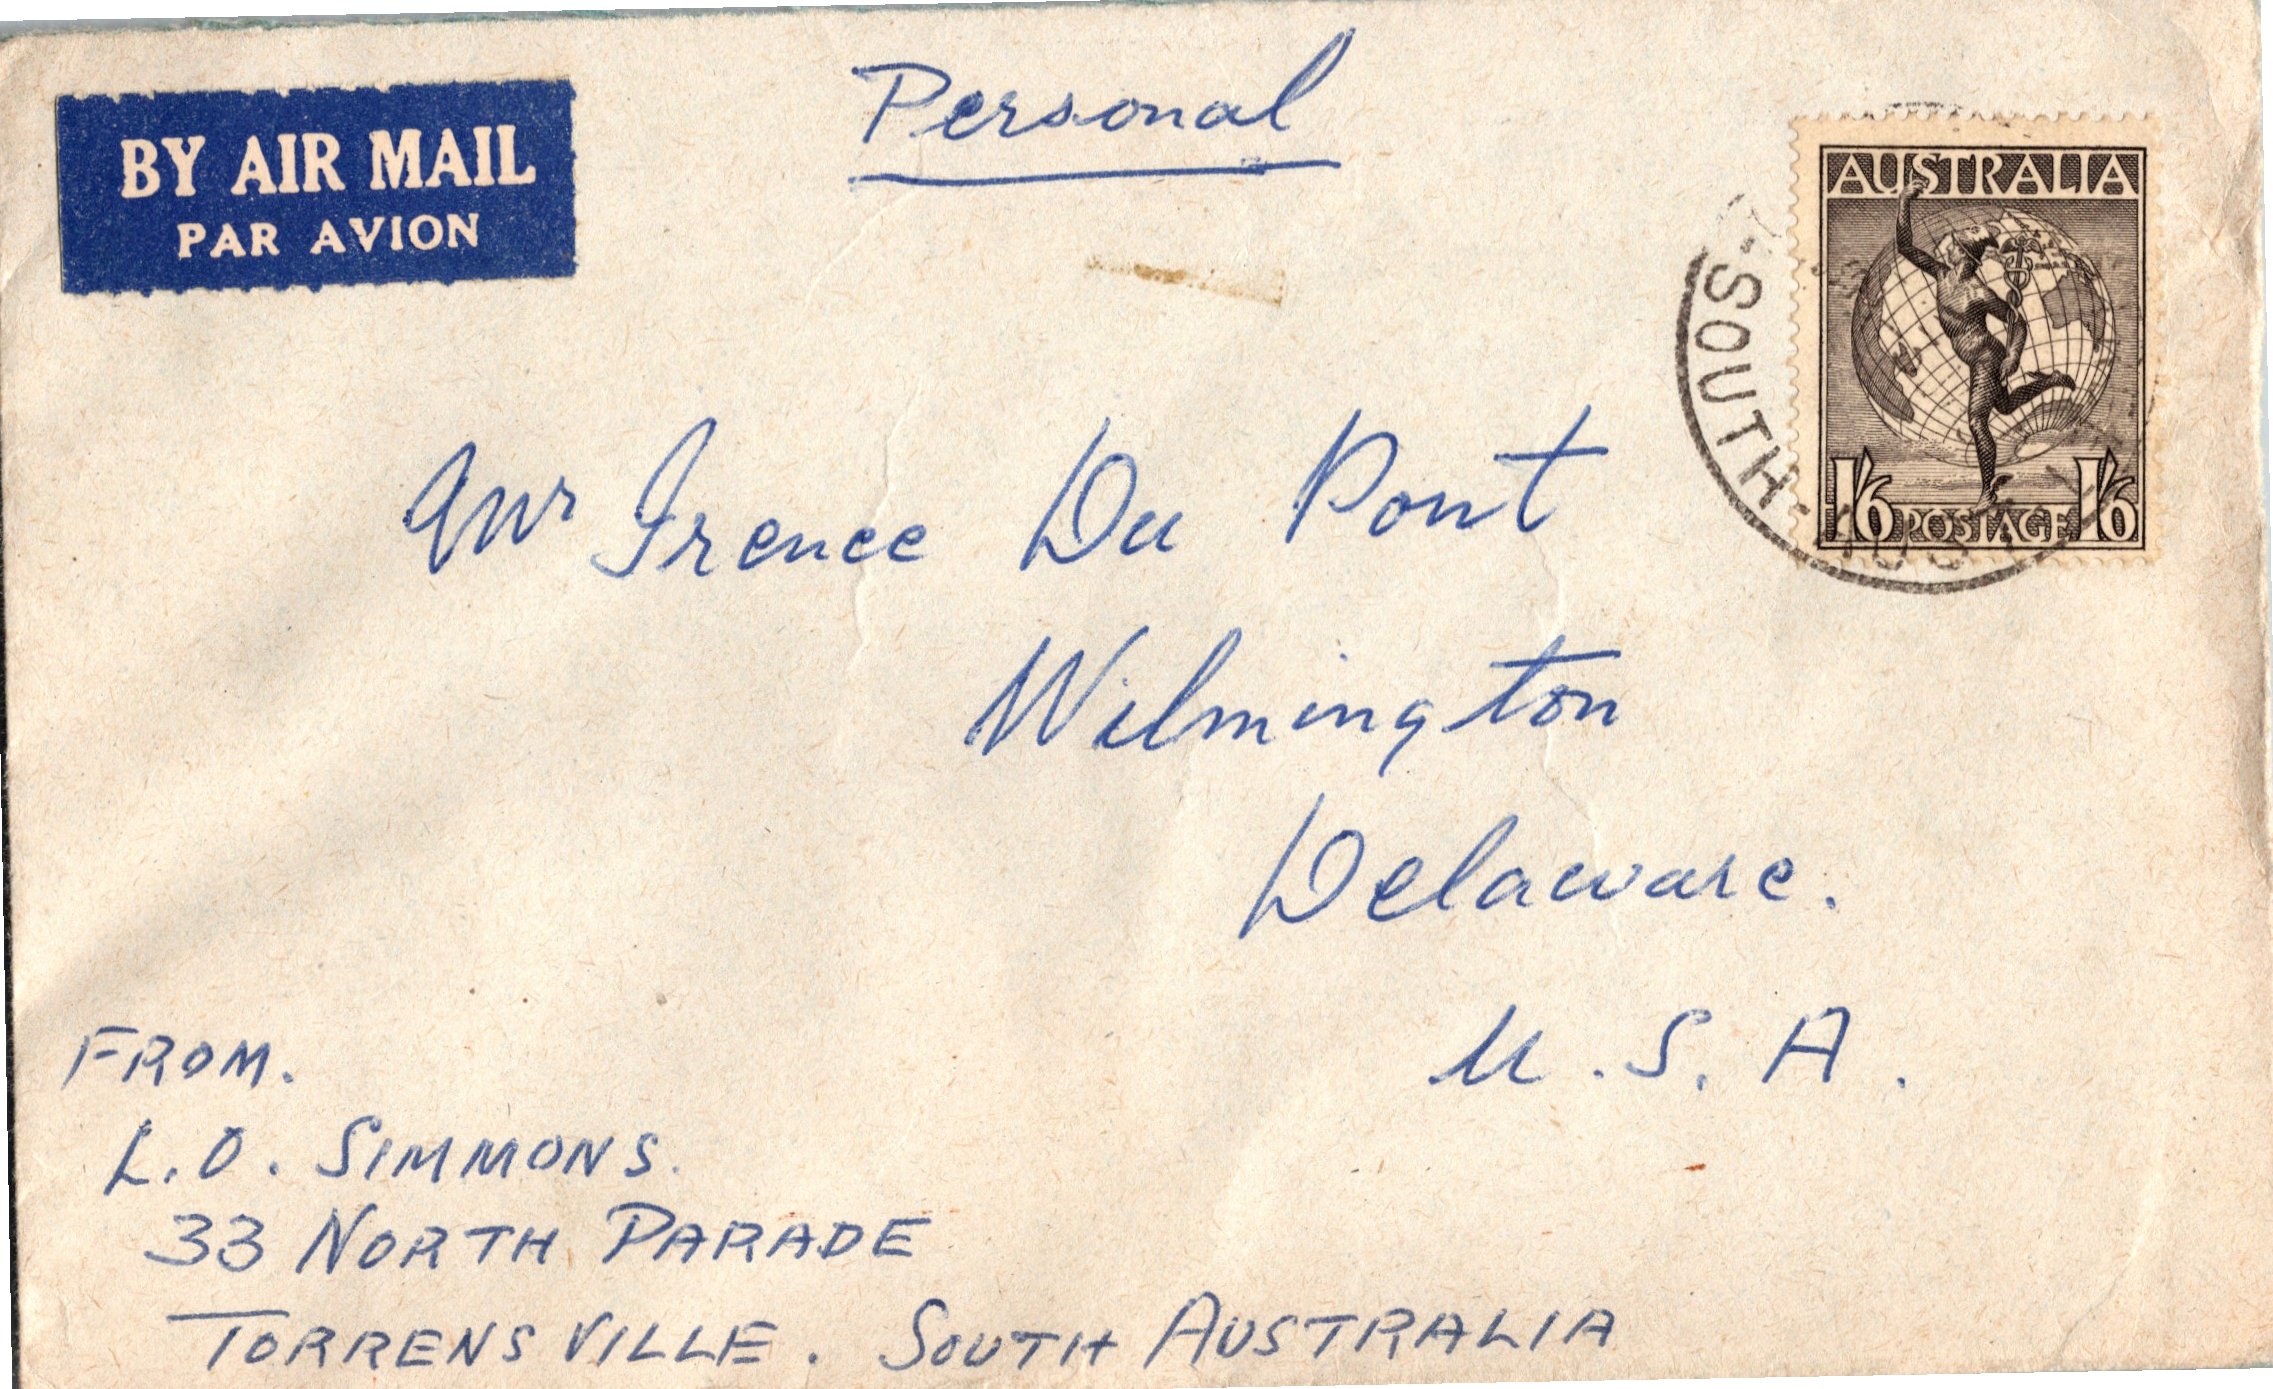 Personal
BY AIR MAIL
PAR AVION
AUSTRALIA
1/6 POSTAGE 1/6
SOUTH
Mr Irenee Du Pont
Wilmington
Delaware.
U.S.A.
FROM.
L.O. SIMMONS.
33 NORTH PARADE
TORRENSVILLE. SOUTH AUSTRALIA